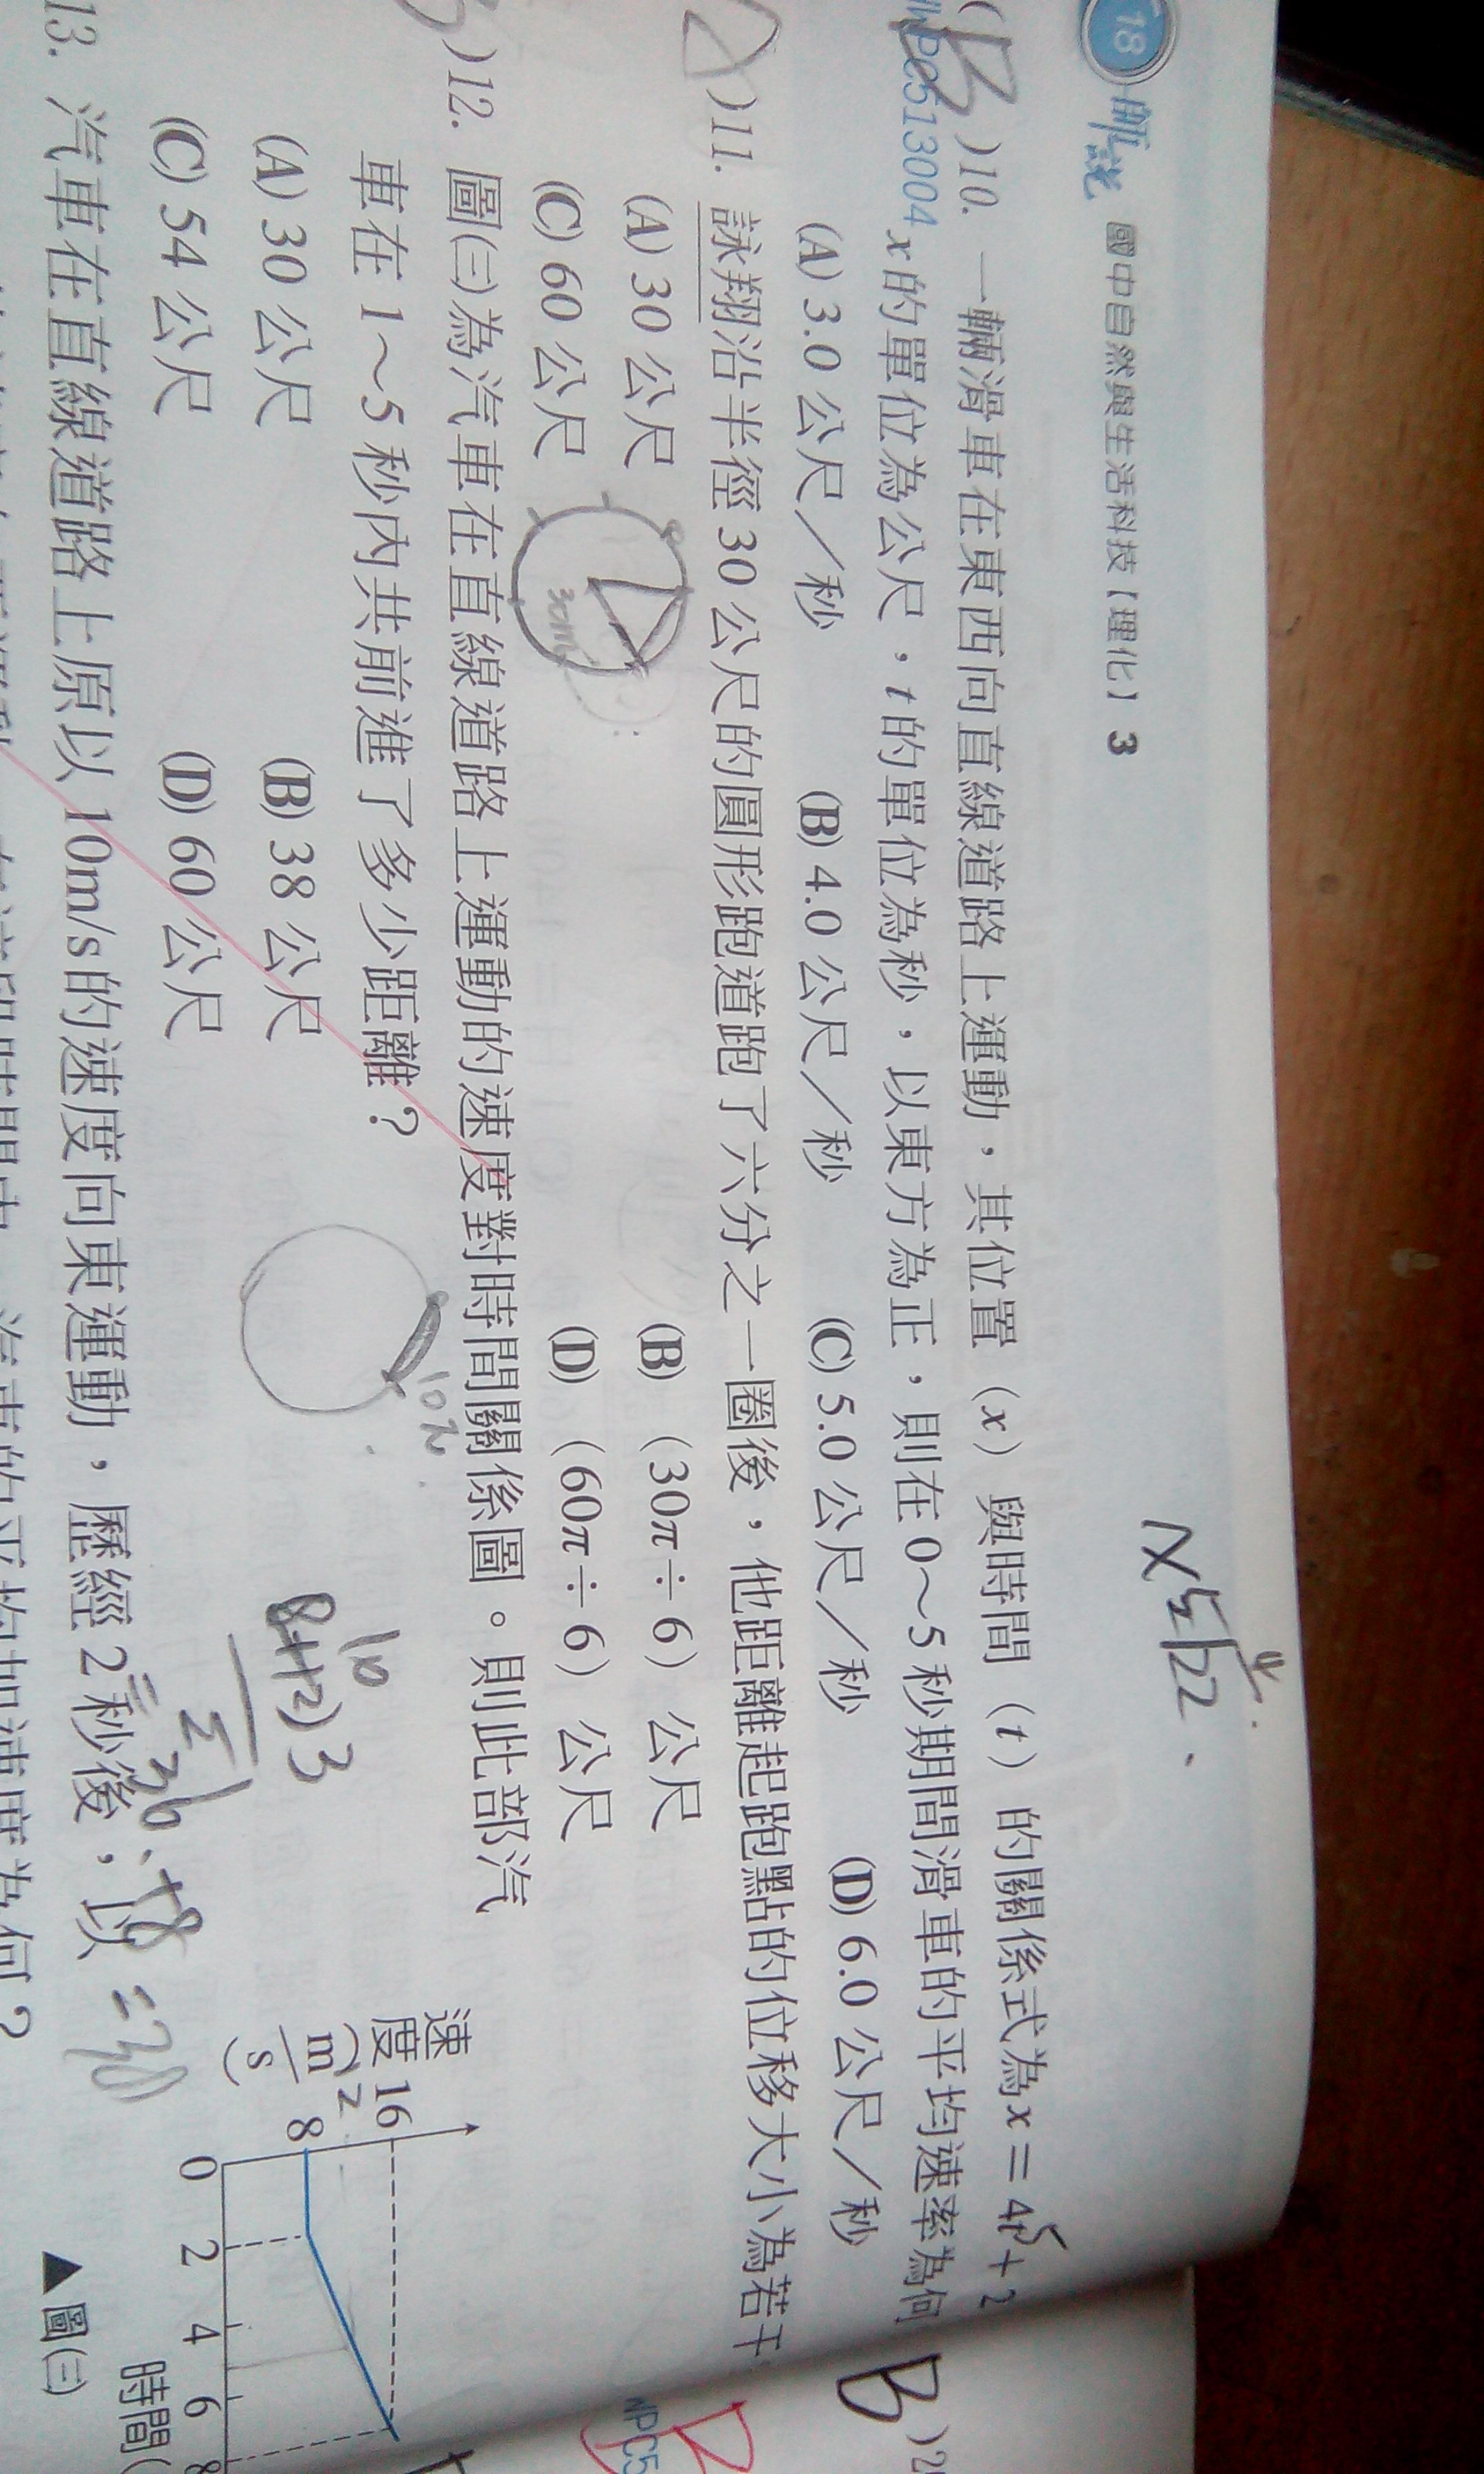 18 國中自然與生活科技【理化】 3
4
5 22
(B)10. 一輛滑車在東西向直線道路上運動，其位置（x）與時間（t）的關係式為x＝4t＋2
x的單位為公尺，t的單位為秒，以東方為正，則在0～5秒期間滑車的平均速率為何
WPC513004
(A) 3.0公尺／秒 (B) 4.0公尺／秒 (C) 5.0公尺／秒 (D) 6.0公尺／秒
)11. 詠翔沿半徑30公尺的圓形跑道跑了六分之一圈後，他距離起跑點的位移大小為若干
(A) 30公尺 (B)（30π÷6）公尺
(C) 60公尺 (D)（60π÷6）公尺
30m
)12. 圖㈢為汽車在直線道路上運動的速度對時間關係圖。則此部汽
車在1～5秒內共前進了多少距離？
(A) 30公尺 (B) 38公尺
(C) 54公尺 (D) 60公尺
10
8+12) 3
2
+8
速度(m/s)
16
12
8
0 2 4 6 8
時間(
▲圖㈢
13. 汽車在直線道路上原以10m/s的速度向東運動，歷經2秒後，以
B )2
B
WPC5